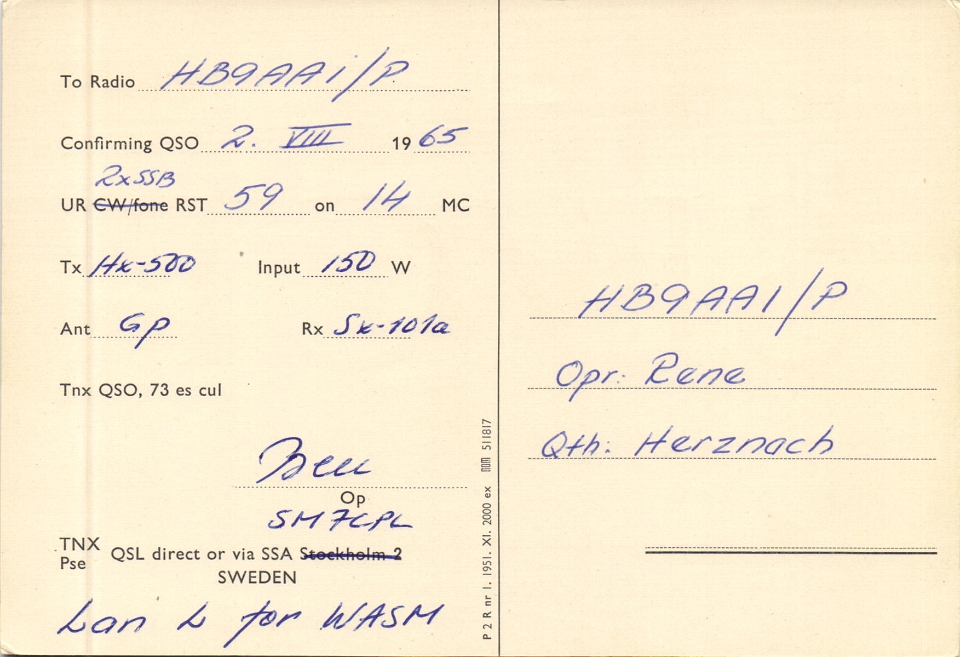 To Radio HB9AAi/P
Confirming QSO 2. VIII 1965
2xSSB
UR CW/fone RST 59 on 14 MC
Tx Hx-500 Input 150 W
Ant Gp Rx Sx-101a
Tnx QSO, 73 es cul
Op
SM7CPL
TNX
Pse QSL direct or via SSA Stockholm 2
SWEDEN
Lan L for WASM
P 2 R nr 1. 1951. XI. 2000 ex 511817
HB9AA1/P
Opr: Rene
Qth: Herznach